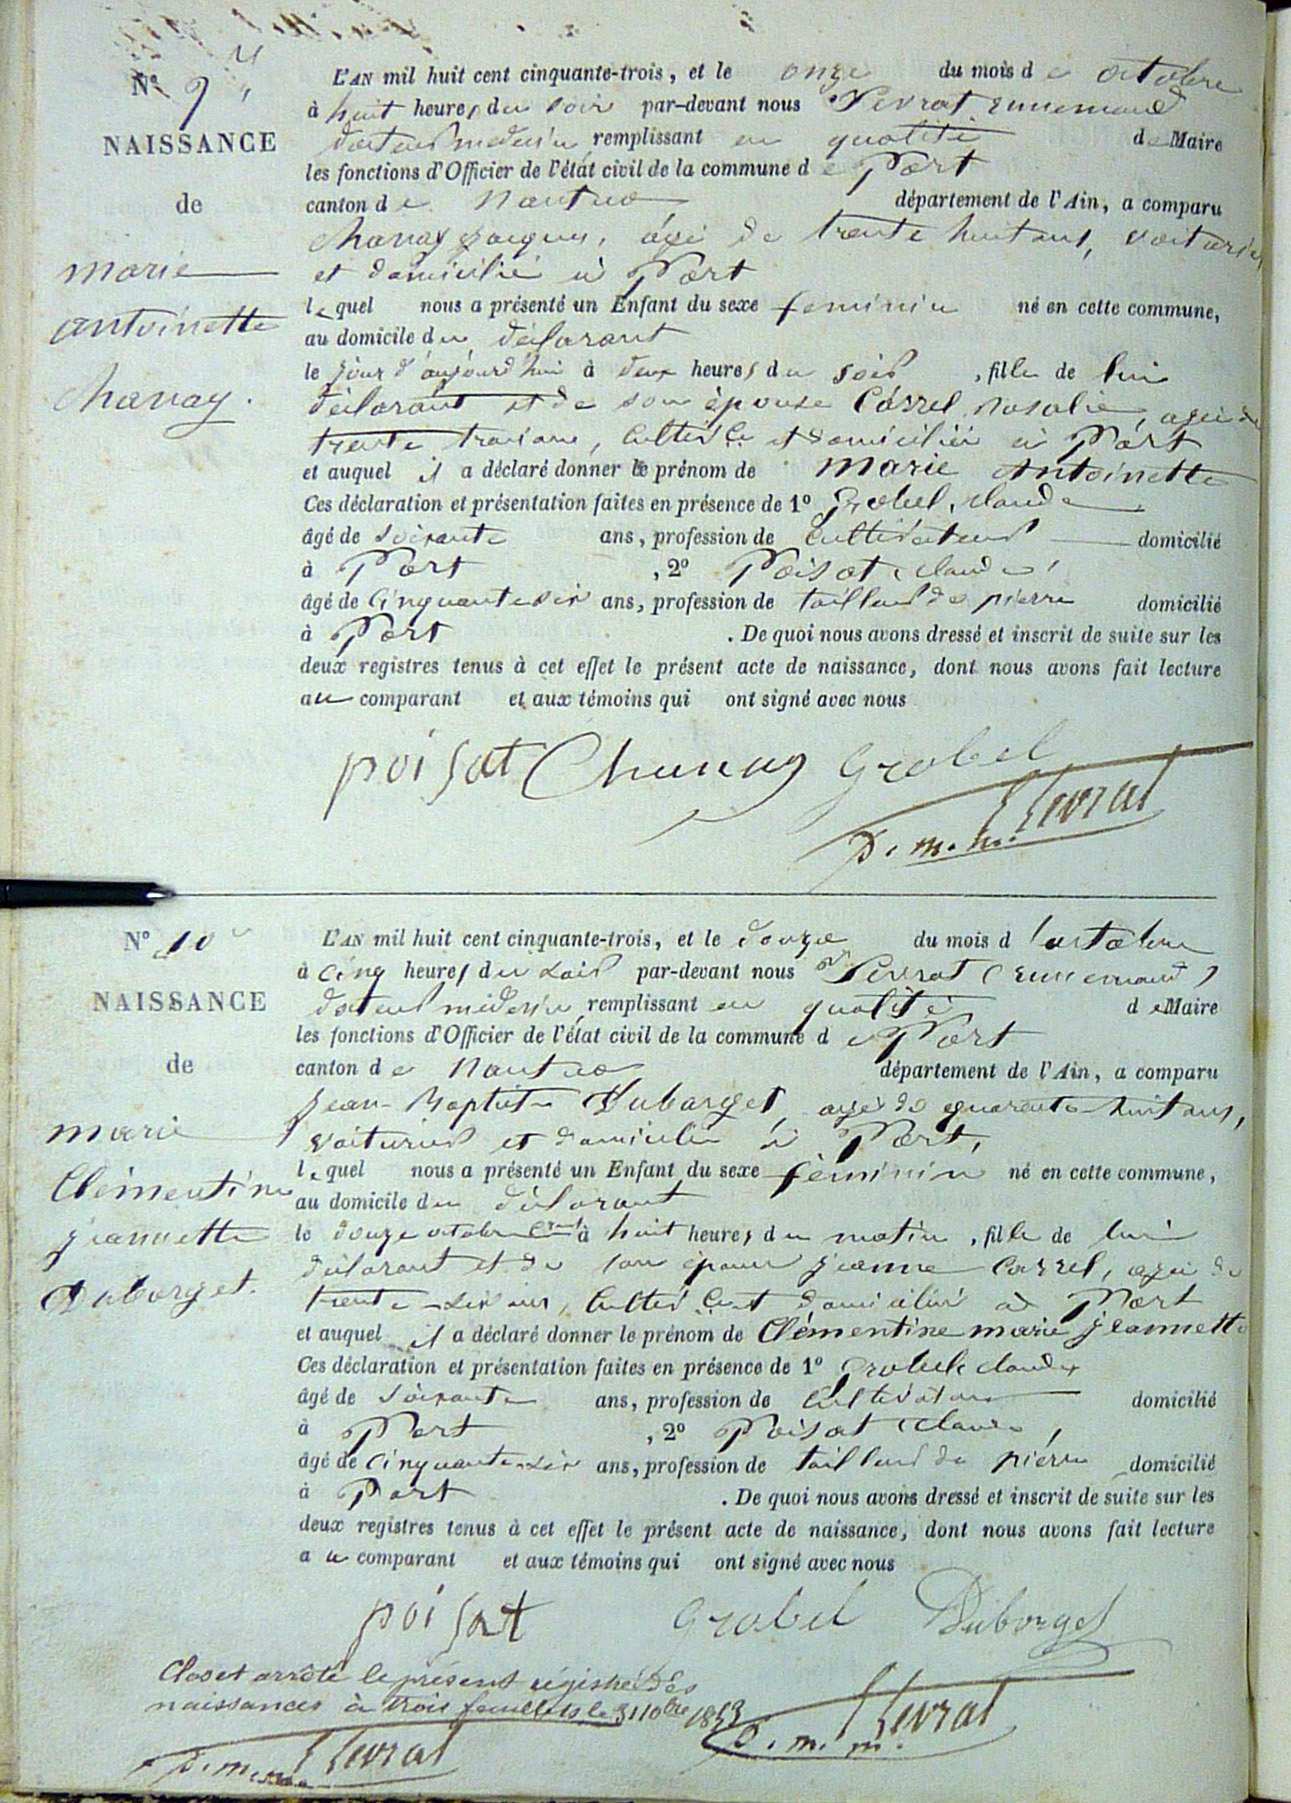 N° 9
NAISSANCE
de
marie
antoinette
Chanay.
L'AN mil huit cent cinquante-trois, et le onze du mois de octobre
à huit heures du soir par-devant nous Pevrat Ennemond
docteur medecin remplissant en qualité de Maire
les fonctions d'Officier de l'état civil de la commune de Port
canton de Nantua département de l'Ain, a comparu
Chanay Jacques, âgé de trente huit ans, voiturier
et domicilié à Port
lequel nous a présenté un Enfant du sexe feminin né en cette commune,
au domicile du déclarant
le jour d'aujourd'hui à deux heures du soir, fille de lui
déclarant et de son épouse Carrel Rosalie, agée de
trente trois ans, cultiv.ce et domiciliée à Port
et auquel il a déclaré donner le prénom de marie Antoinette
Ces déclaration et présentation faites en présence de 1° Grobel, claude
âgé de soixante ans, profession de cultivateur domicilié
à Port, 2° Poisat, claude,
âgé de cinquante six ans, profession de tailleur de pierre domicilié
à Port. De quoi nous avons dressé et inscrit de suite sur les
deux registres tenus à cet effet le présent acte de naissance, dont nous avons fait lecture
au comparant et aux témoins qui ont signé avec nous
poisat Chanay Grobel
D. m. m. Pevrat
N° 10
NAISSANCE
de
marie
Clémentine
jeannette
Duborget.
L'AN mil huit cent cinquante-trois, et le douze du mois d'octobre
à cinq heures du soir par-devant nous Pevrat (Ennemond)
docteur médecin remplissant en qualité de Maire
les fonctions d'Officier de l'état civil de la commune de Port
canton de Nantua département de l'Ain, a comparu
Jean-Baptiste Duborget, agé de quarante-huit ans,
voiturier et domicilié à Port,
lequel nous a présenté un Enfant du sexe féminin né en cette commune,
au domicile du déclarant
le douze octobre crant à huit heures du matin, fille de lui
déclarant et de son épouse jeanne Carrel, agée de
trente-six ans, cultiv.ce et domiciliée à Port
et auquel il a déclaré donner le prénom de Clémentine marie jeannette
Ces déclaration et présentation faites en présence de 1° Grobel claude
âgé de soixante ans, profession de cultivateur domicilié
à Port, 2° Poisat claude,
âgé de cinquante-six ans, profession de tailleur de pierre domicilié
à Port. De quoi nous avons dressé et inscrit de suite sur les
deux registres tenus à cet effet le présent acte de naissance, dont nous avons fait lecture
au comparant et aux témoins qui ont signé avec nous
poisat Grobel Duborget
Clos et arrêté le présent régistre des
naissances à trois feuillets le 31 10bre 1853
D. m. m. Pevrat
D. m. m. Pevrat